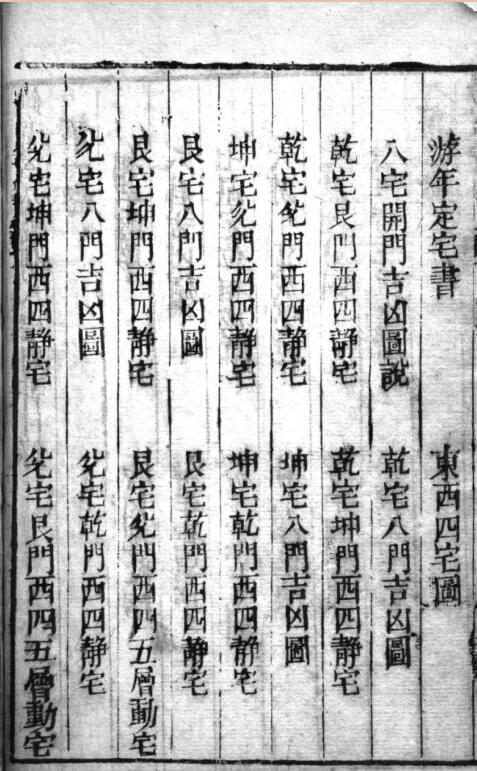 游年定宅書　東西四宅圖
八宅開門吉凶圖說　乾宅八門吉凶圖
乾宅艮門西四静宅　乾宅坤門西四静宅
乾宅兊門西四静宅　坤宅八門吉凶圖
坤宅兊門西四静宅　坤宅乾門西四静宅
艮宅八門吉凶圖　艮宅乾門西四静宅
艮宅坤門西四静宅　艮宅兊門西四五層動宅
兊宅八門吉凶圖　兊宅乾門西四静宅
兊宅坤門西四静宅　兊宅艮門西四五層動宅